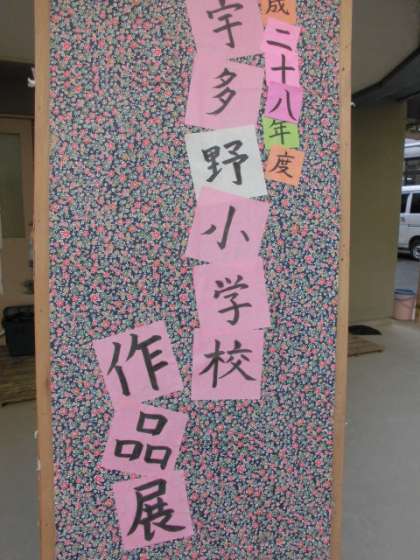 成二十八年度
宇多野小学校
作品展